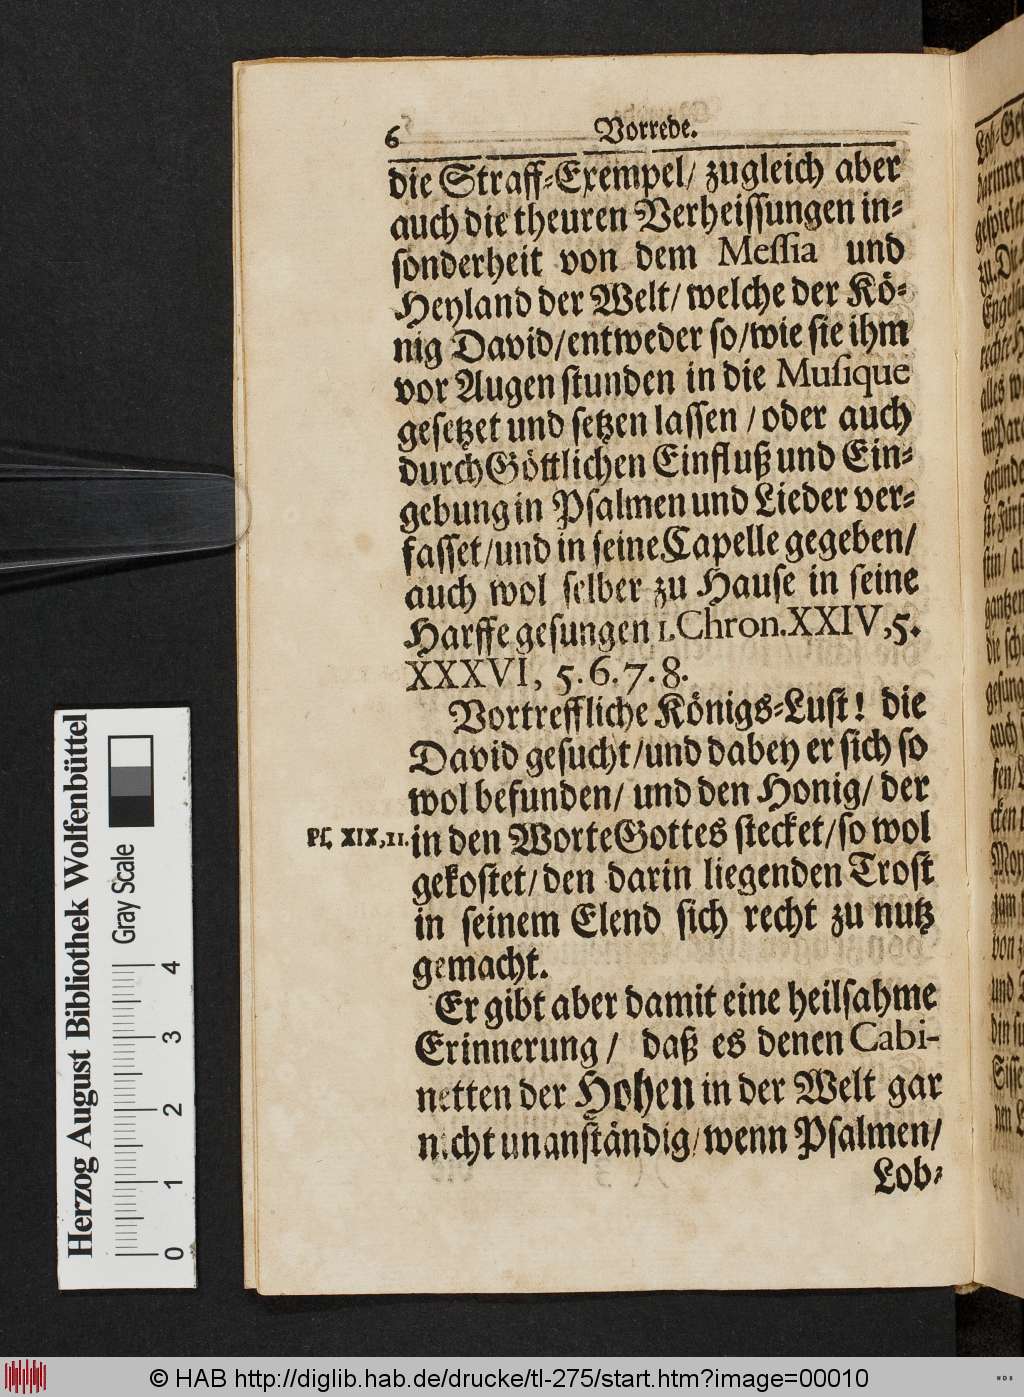 6 Vorrede.
die Straff-Exempel/ zugleich aber
auch die theuren Verheissungen in-
sonderheit von dem Messia und
Heyland der Welt/ welche der Kö-
nig David/entweder so/wie sie ihm
vor Augen stunden in die Musique
gesetzet und setzen lassen / oder auch
durch Göttlichen Einfluß und Ein-
gebung in Psalmen und Lieder ver-
fasset/und in seine Capelle gegeben/
auch wol selber zu Hause in seine
Harffe gesungen 1. Chron. XXIV, 5.
XXXVI, 5. 6. 7. 8.
Vortreffliche Königs-Lust! die
David gesucht/und dabey er sich so
wol befunden/ und den Honig/ der
Ps. XIX, 11. in den Worte Gottes stecket/so wol
gekostet/den darin liegenden Trost
in seinem Elend sich recht zu nutz
gemacht.
Er gibt aber damit eine heilsahme
Erinnerung / daß es denen Cabi-
netten der Hohen in der Welt gar
nicht unanständig/wenn Psalmen/
Lob-
Herzog August Bibliothek Wolfenbüttel
Gray Scale
0 1 2 3 4
© HAB http://diglib.hab.de/drucke/tl-275/start.htm?image=00010